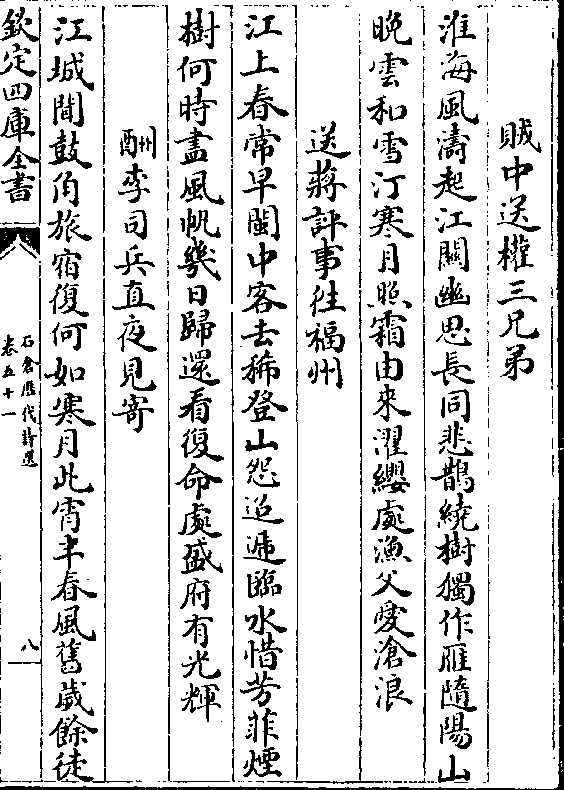 賊中送權三兄弟
淮海風濤起江關幽思長同悲鵲繞樹獨作雁隨陽山
晚雲和雪汀寒月照霜由來濯纓處漁父愛滄浪
送蔣評事往福州
江上春常早閩中客去稀登山怨迢遞臨水惜芳菲煙
樹何時盡風帆幾日歸還看復命處盛府有光輝
酬李司兵直夜見寄
江城聞鼓角旅宿復何如寒月此宵半春風舊歲餘徒
欽定四庫全書
石倉歷代詩選
卷五十一
八